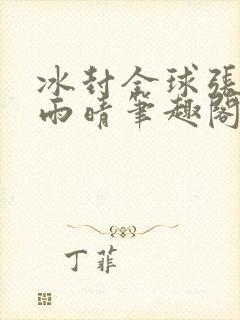 冰封全球張
雨晴筆趣閣
丁菲